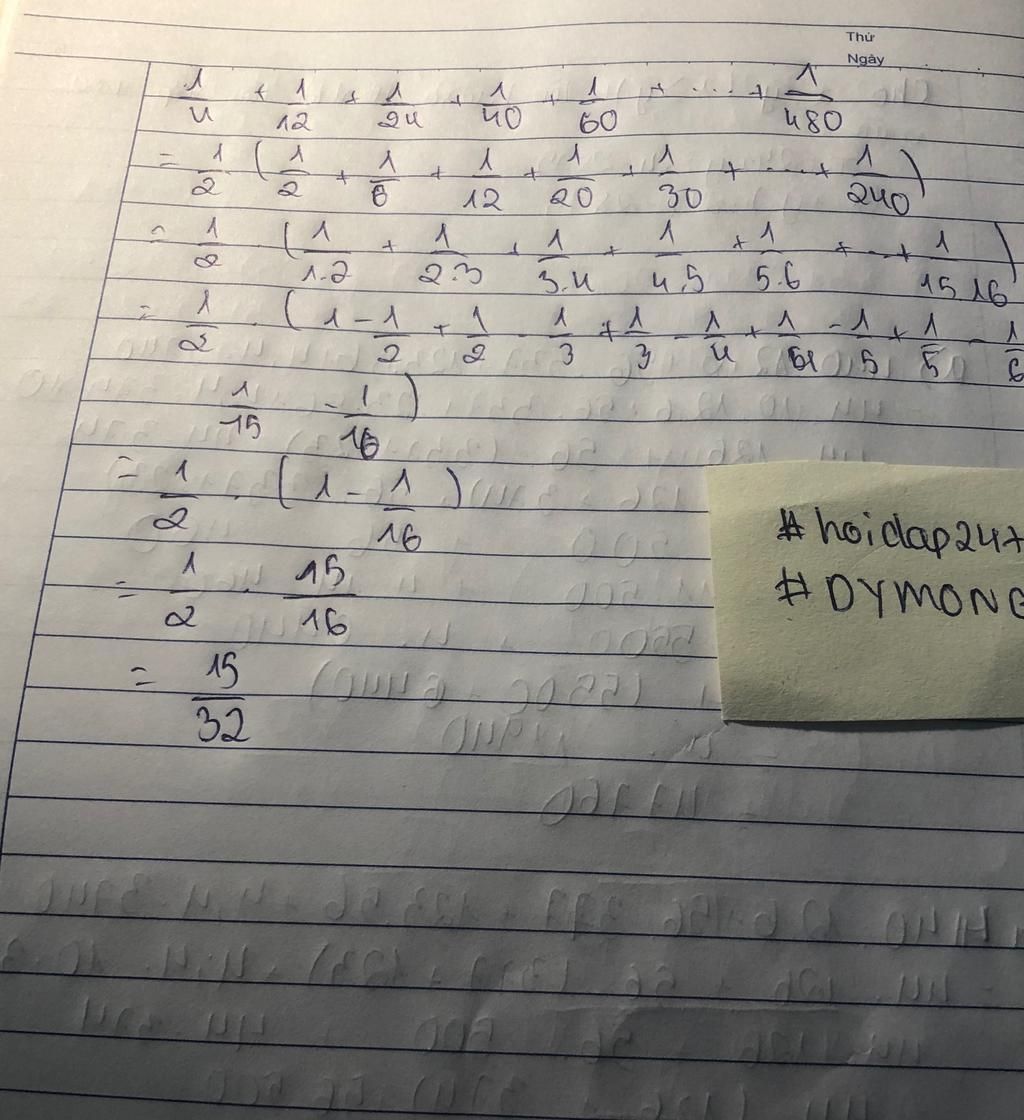 Thứ
Ngày
1/4 + 1/12 + 1/24 + 1/40 + 1/60 + ... + 1/480
= 1/2 (1/2 + 1/6 + 1/12 + 1/20 + 1/30 + ... + 1/240)
= 1/2 . (1/1.2 + 1/2.3 + 1/3.4 + 1/4.5 + 1/5.6 + ... + 1/15.16)
= 1/2 . (1 - 1/2 + 1/2 - 1/3 + 1/3 - 1/4 + 1/4 - 1/5 + 1/5 - 1/6
1/15 - 1/16)
= 1/2 . (1 - 1/16)
= 1/2 . 15/16
= 15/32
#hoidap24
#DYMONG